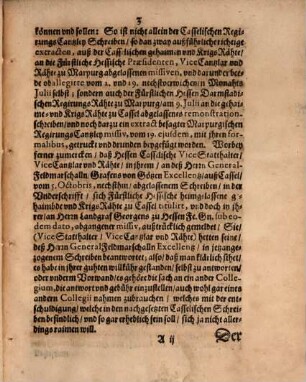 3
können und sollen: So ist nicht allein der Casselischen Regie
rungs Cantzley Schreiben / so dan zway außführliche richtige
extracten, auß der Casselischen gehaimen und Krigs Rähte /
an die Fürstliche Hessische Præsidenten, Vice Cantzlar und
Räht zu Marpurg abgelassenen missiven, und darunder bee
de ob allegirte vom 2. und 19. nechstverwichnen Monahts
Julii selbst / sondern auch der Fürstlichen Hessen Darmstatti
schen Regierung Rähte zu Marpurg / am 9. Julii an die gehai
me und Krigs Rähte zu Cassel abgelassenes remonstration-
schreiben / und noch darzu ein extract besagter Marpurgischen
Regierungs Cantzley missif, vom 19. ejusdem, mit ihren for-
malibus, getruckt / und denselben beygefügt worden. Worbey
ferner zumercken / daß Hessen Casselische Vice Statthalter /
Vice Cantzlar und Rähte / in ihrem / an deß Herrn General-
Feldmarschalln Grafens von Götzen Excellentz / auß Cassel /
vom 5. Octobris, nechsthin / abgelassenem Schreiben / in der
Underschrifft / sich Fürstliche Hessische heimgelassene ge-
haimbde und Krigs Rähte zu Cassel tituliter, und doch in ih-
rer / an Herrn Landgraf Georgens zu Hessen Fr. Gn. sub eo-
dem dato, abgangener missiv, außtrücklich gemeldet / Sie /
(Vice Statthalter / Vice Cantzlar und Rähte) hetten seine /
deß Herrn General Feldmarschalln Excellentz / in jetzange-
zogenem Schreiben beantwortet; also / daß man klärlich sihet /
es habe in ihrer guhten willkühr gestanden / selbst zu antworten /
oder underm Vorwand / es gehöre die sach an ein ander Colle-
gium, die antwort und gebühr einzustellen / auch wohl gar eines
andern Collegii nahmen zubrauchen / welches mit der ent-
schuldigung / welche in den nachgesetzten Casselischen Schrei-
ben befindlich / und so gar erheblich sein soll / sich ja nicht aller-
dings raimen will.
A ij Der